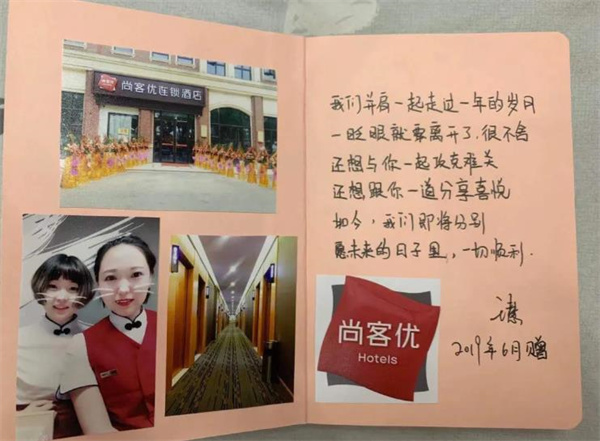 尚客优连锁酒店
我们并肩一起走过一年的岁月
一眨眼就要离开了,很不舍
还想与你一起攻克难关
还想跟你一道分享喜悦
如今,我们即将分别
愿未来的日子里,一切顺利.
2019年6月赠
尚客优
Hotels